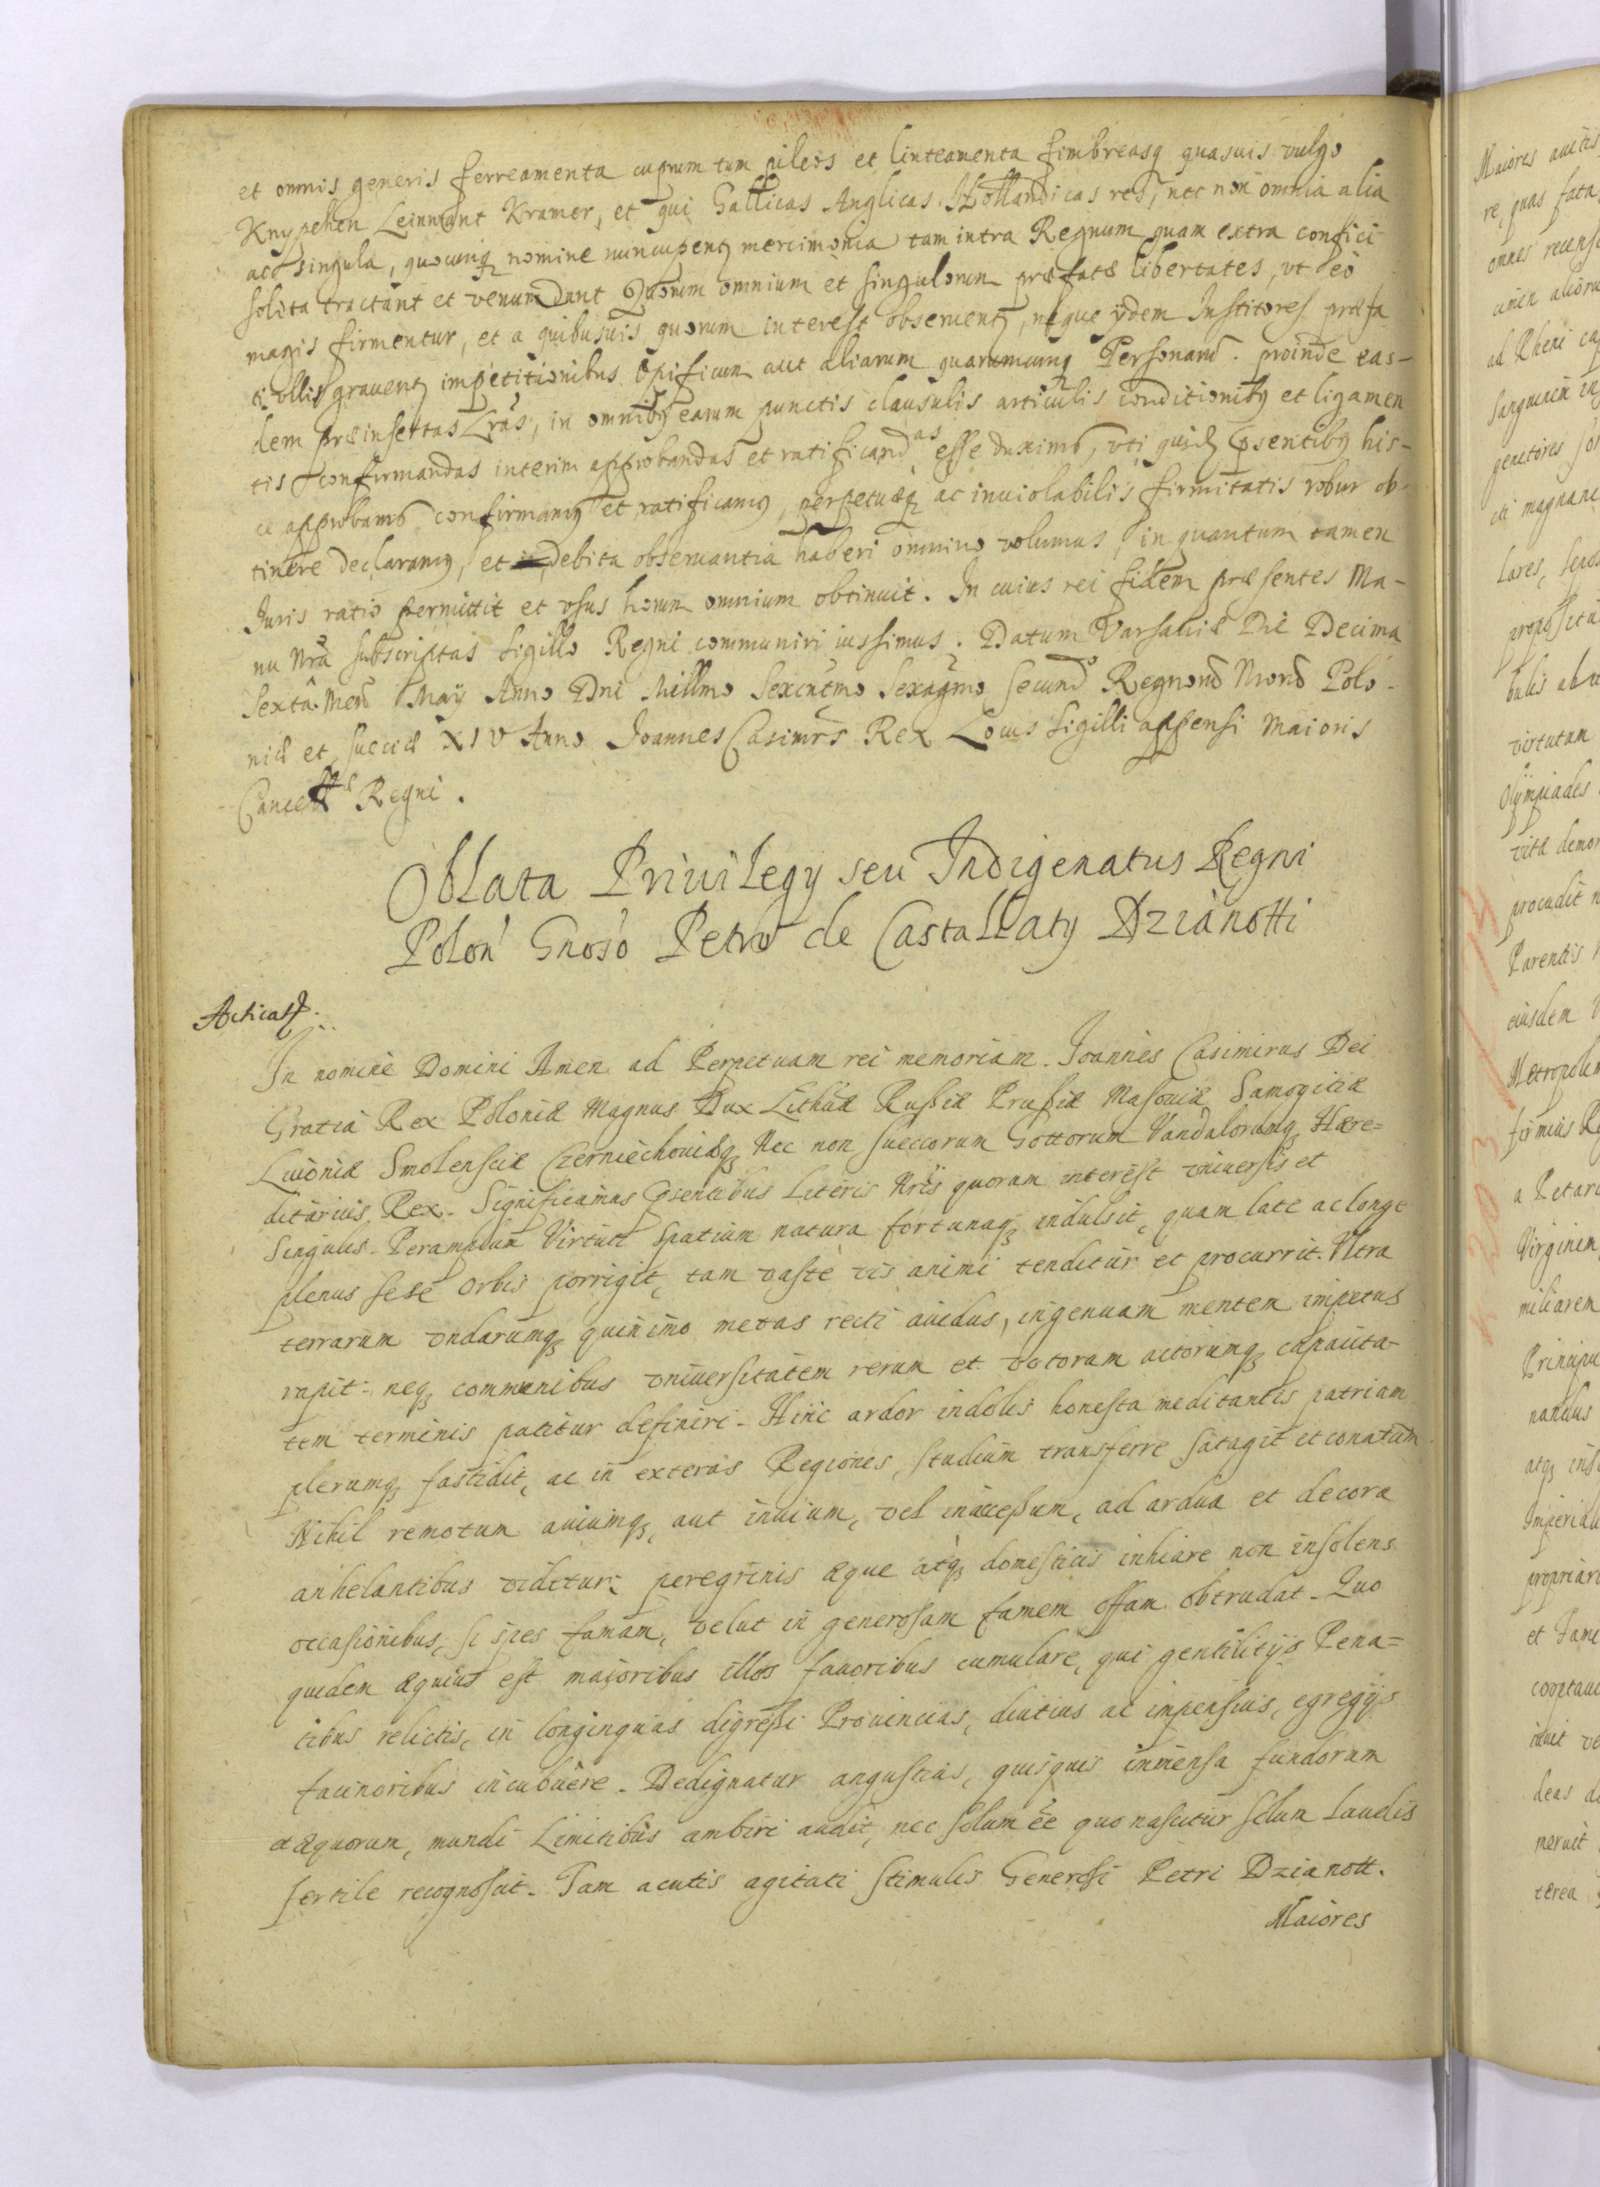 et omnis generis ferreamenta cuprum tum pileos et linteamenta fimbreasq quasuis vulgo
Knypehen Leinwant Kramer, et qui Gallicas Anglicas Hollandicas res, nec non omnia alia
ac singula, quocunq nomine nuncupent mercimonia tam intra Regnum quam extra confici
solita tractant et venundant Quorum omnium et singulorum præfatæ libertates, vt eo
magis firmentur, et a quibusuis quorum interest obseruent, neque ijdem Institores præfa
ti vllis grauent impetitionibus Opificum aut aliarum quarumcunq Personarū. proinde eas-
dem præinsertas Lrās, in omnibq earum punctis clausulis articulis conditionibq et ligamen
tis confirmandas interim approbandas et ratificandas esse duximus, vti quidē psentibq his-
ce approbamus confirmamq et ratificamq, perpetuæq ac inuiolabilis firmitatis robur ob-
tinere declaramq, et debita obseruantia haberi omnino volumus, in quantum tamen
Juris ratio permittit et vsus horum omnium obtinuit. In cuius rei fidem præsentes Ma-
nu Nrā subscriptas sigillo Regni communiri iussimus. Datum Varsaviæ Die Decima
Sexta Men May Anno Dni Millmo Sexentmo Sexagmo Secundo Regnorū Nrorū Polo-
niæ et Sueciæ XIV Anno Joannes Casimrs Rex Locus Sigilli appensi Maioris
Cancell Regni.
Oblata Priuilegy seu Indigenatus Regni
Polon Gnoso Petro de Castallaty Dzianotti
Acticat.
In nomine Domini Amen ad Perpetuam rei memoriam. Joannes Casimirus Dei
Gratia Rex Poloniæ Magnus Dux Lithūæ Rußiæ Prußiæ Masouiæ Samogitiæ
Liuoniæ Smolensciæ Czerniechouiæq Nec non Sueccorum Gottorum Vandalorumq Hære=
ditarius Rex. Significamus Psentibus Literis Nris quorum interest vniuersis et
Singulis. Peramplum Virtuti Spatium natura fortunaq indulsit, quam late ac longe
plenus sese orbis porrigit, tam vaste vis animi tenditur et procurrit. Vltra
terrarum vndarumq quinimo metas recti auidus, ingenuam mentem impetus
rapit: neq communibus vniuersitatem rerum et votorum actorumq capacita-
tem terminis patitur definiri. Hinc ardor indolis honesta meditantis patriam
plerumq fastidit, ac in exteras Regiones, studium transferre satagit et conatum
Nihil remotum auiumq, aut inuium, vel inaccessum, ad ardua et decora
anhelantibus videtur; peregrinis æque atq domesticis inhiare non insolens
occasionibus, si spes famam, velut in generosam famem offam obtrudat. Quo
quidem æquius est maioribus illos fauoribus cumulare, qui gentilitijs Pena=
tibus relictis, in longinquas digreßi Prouincias, diutius ac impensius, egregijs
facinoribus incubuere. Dedignatur angustias, quisquis immensa fundorum
et æquorum, mundi Limitibus ambiri audit, nec solum ēe quo nascitur solum laudis
fertile recognoscit. Tam acutis agitati Stimulis Generosi Petri Dzianott.
Maiores